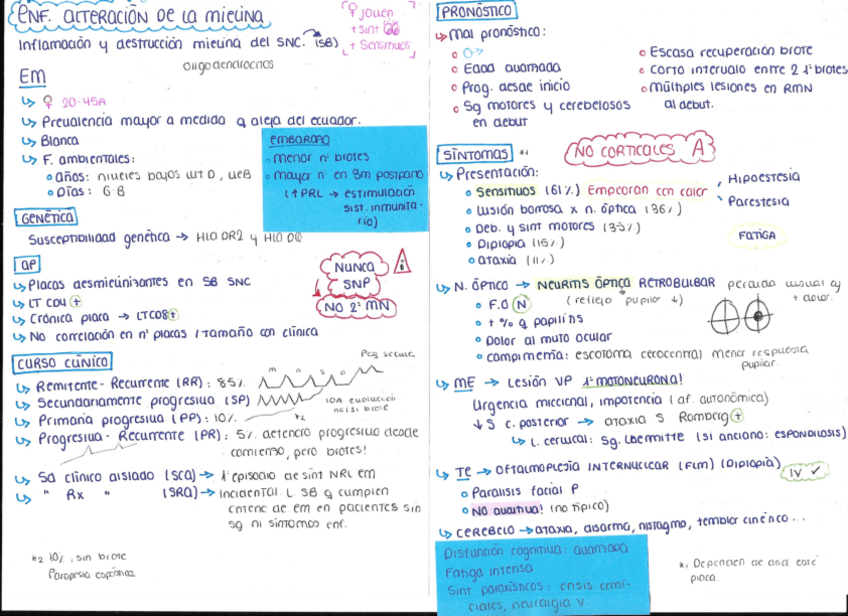 ENF. ALTERACIÓN DE LA MIELINA
♀ joven
+ sint
+ Sensitivos
Inflamación y destrucción mielina del SNC. (SB)
Oligodendrocitos
EM
♀ 20-45A
Prevalencia mayor a medida q aleja del ecuador.
Blanca
F. ambientales:
Años: niveles bajos vit D, VEB
Días: 6-8
EMBARAZO
menor nº brotes
mayor nº en 3m postparto
(↑ PRL → estimulación
sist. inmunita-
rio)
GENÉTICA
Susceptibilidad genética → HLA DR2 y HLA DQ
AP
Placas desmielinizantes en SB SNC
LT CD4 +
Crónica placa → LTCD8 +
No correlación en nº placas / tamaño con clínica
NUNCA
SNP
NO 2ª MN
CURSO CLÍNICO
Peq secuela
Remitente-Recurrente (RR): 85%
Secundariamente progresiva (SP)
10A evolución
no/si brote
Primaria progresiva (PP): 10%
*2
Progresiva-Recurrente (PR): 5% deterioro progresivo desde
comienzo, pero brotes!
Sd clínico aislado (SCA) → 1º episodio de sint NRL em
" Rx " (SRA) → incidental L SB q cumplen
criterio de em en pacientes sin
sg ni síntomas enf.
*2 10%, sin brote
Paraparesia espástica
PRONÓSTICO
Mal pronóstico:
♂
Edad avanzada
Prog. desde inicio
Sg motores y cerebelosos
en debut
Escasa recuperación brote
Corto intervalo entre 2 1º brotes
Múltiples lesiones en RMN
al debut.
SÍNTOMAS *1
NO CORTICALES A
Presentación:
Sensitivos (61%) Empeoran con calor
Hipoestesia
Parestesia
Visión borrosa x n. óptica (36%)
Deb. y sint motores (35%)
FATIGA
Diplopia (15%)
Ataxia (11%)
N. ÓPTICO → NEURITIS ÓPTICA RETROBULBAR perdida visual
+ dolor.
F.O (N) (reflejo pupilar ↓)
+ % q papilitis
Dolor al mvto ocular
campimetría: escotoma cecocentral menor respuesta
pupilar.
ME → Lesión VP 1ª MOTONEURONA!
Urgencia miccional, impotencia (af. autonómica)
↓S c. posterior → ataxia S Romberg +
L. cervical: Sg. Lhermitte (si anciano: ESPONDILOSIS)
TE → OFTALMOPLEJIA INTERNUCLEAR (FLM) (Diplopía)
IV ✓
Paralisis facial P
NO auditiva! (no típico)
CEREBELO → ataxia, disartria, nistagmo, temblor cinético...
Disfunción cognitiva: avanzada
Fatiga intensa
Sint paroxísticos: crisis comi-
ciales, neuralgia V
*1 Dependen de donde esté
placa.